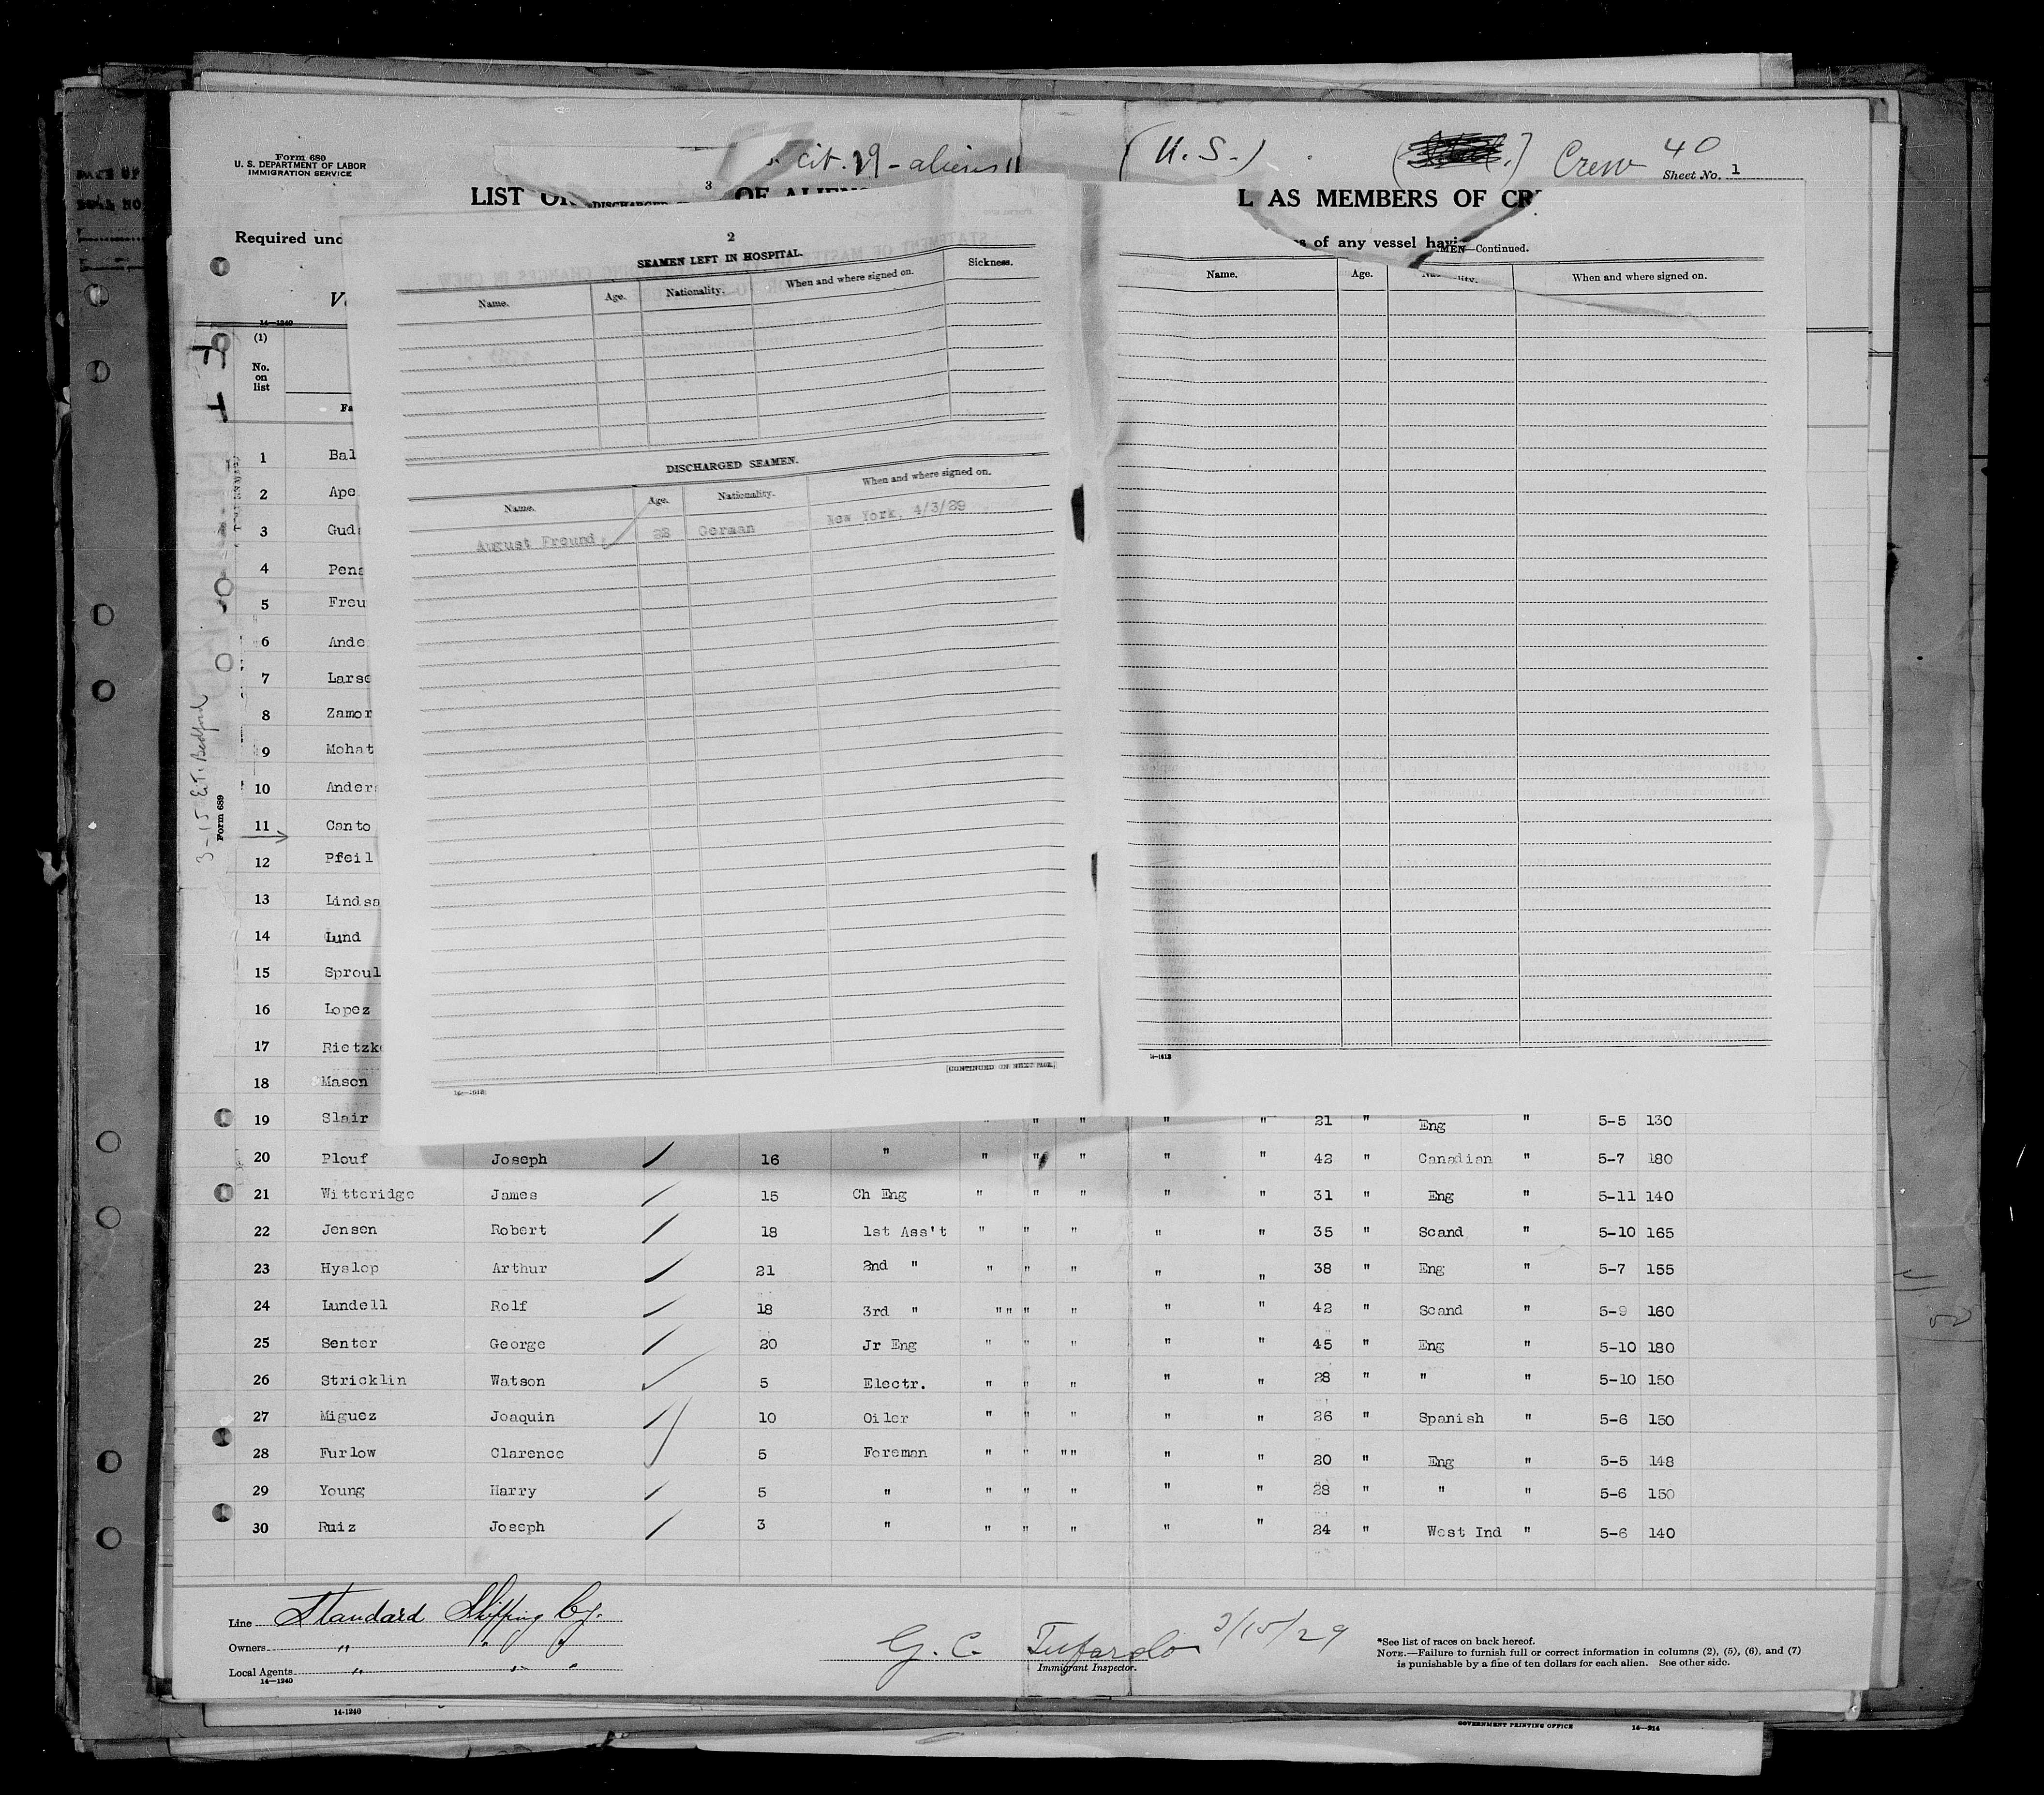 Form 680
U. S. DEPARTMENT OF LABOR
IMMIGRATION SERVICE
cit. 29 - aliens 11
(U. S.)
Crew 40
Sheet No. 1
3
LIST OR
DISCHARGED
OF ALIENS
L AS MEMBERS OF CR
Required und
s of any vessel havi
MEN—Continued.
2
SEAMEN LEFT IN HOSPITAL.
Name. Age. Nationality. When and where signed on. Sickness.
Name. Age. When and where signed on.
DISCHARGED SEAMEN.
Name. Age. Nationality. When and where signed on.
August Freund 28 German New York, 4/3/29
[CONTINUED ON NEXT PAGE.]
14-1240
(1)
No. on list
Fa
1 Bal
2 Apo
3 Gud
4 Pena
5 Freu
6 Ande
7 Larse
8 Zamor
9 Mohat
10 Anders
11 Canto
12 Pfeil
13 Lindsa
14 Lund
15 Sproul
16 Lopez
17 Rietzke
18 Mason
19 Slair " " " " " 21 " Eng " 5-5 130
20 Plouf Joseph 16 " " " " " " 42 " Canadian " 5-7 180
21 Witteridge James 15 Ch Eng " " " " " 31 " Eng " 5-11 140
22 Jensen Robert 18 1st Ass't " " " " " 35 " Scand " 5-10 165
23 Hyslop Arthur 21 2nd " " " " " " 38 " Eng " 5-7 155
24 Lundell Rolf 18 3rd " "" " " " " 42 " Scand " 5-9 160
25 Senter George 20 Jr Eng " " " " " 45 " Eng " 5-10 180
26 Stricklin Watson 5 Electr. " " " " " 28 " " " 5-10 150
27 Miguez Joaquin 10 Oiler " " " " " 26 " Spanish " 5-6 150
28 Furlow Clarence 5 Foreman " " "" " " 20 " Eng " 5-5 148
29 Young Harry 5 " " " " " " 28 " " " 5-6 150
30 Ruiz Joseph 3 " " " " " " 24 " West Ind " 5-6 140
3-15 E.T. Bedford
Form 689
Line Standard Shipping Co.
Owners " " "
Local Agents " " "
14-1240
G. C. Tufardo 3/15/29
Immigrant Inspector.
*See list of races on back hereof.
NOTE.—Failure to furnish full or correct information in columns (2), (5), (6), and (7)
is punishable by a fine of ten dollars for each alien. See other side.
14-1240
GOVERNMENT PRINTING OFFICE 14-214